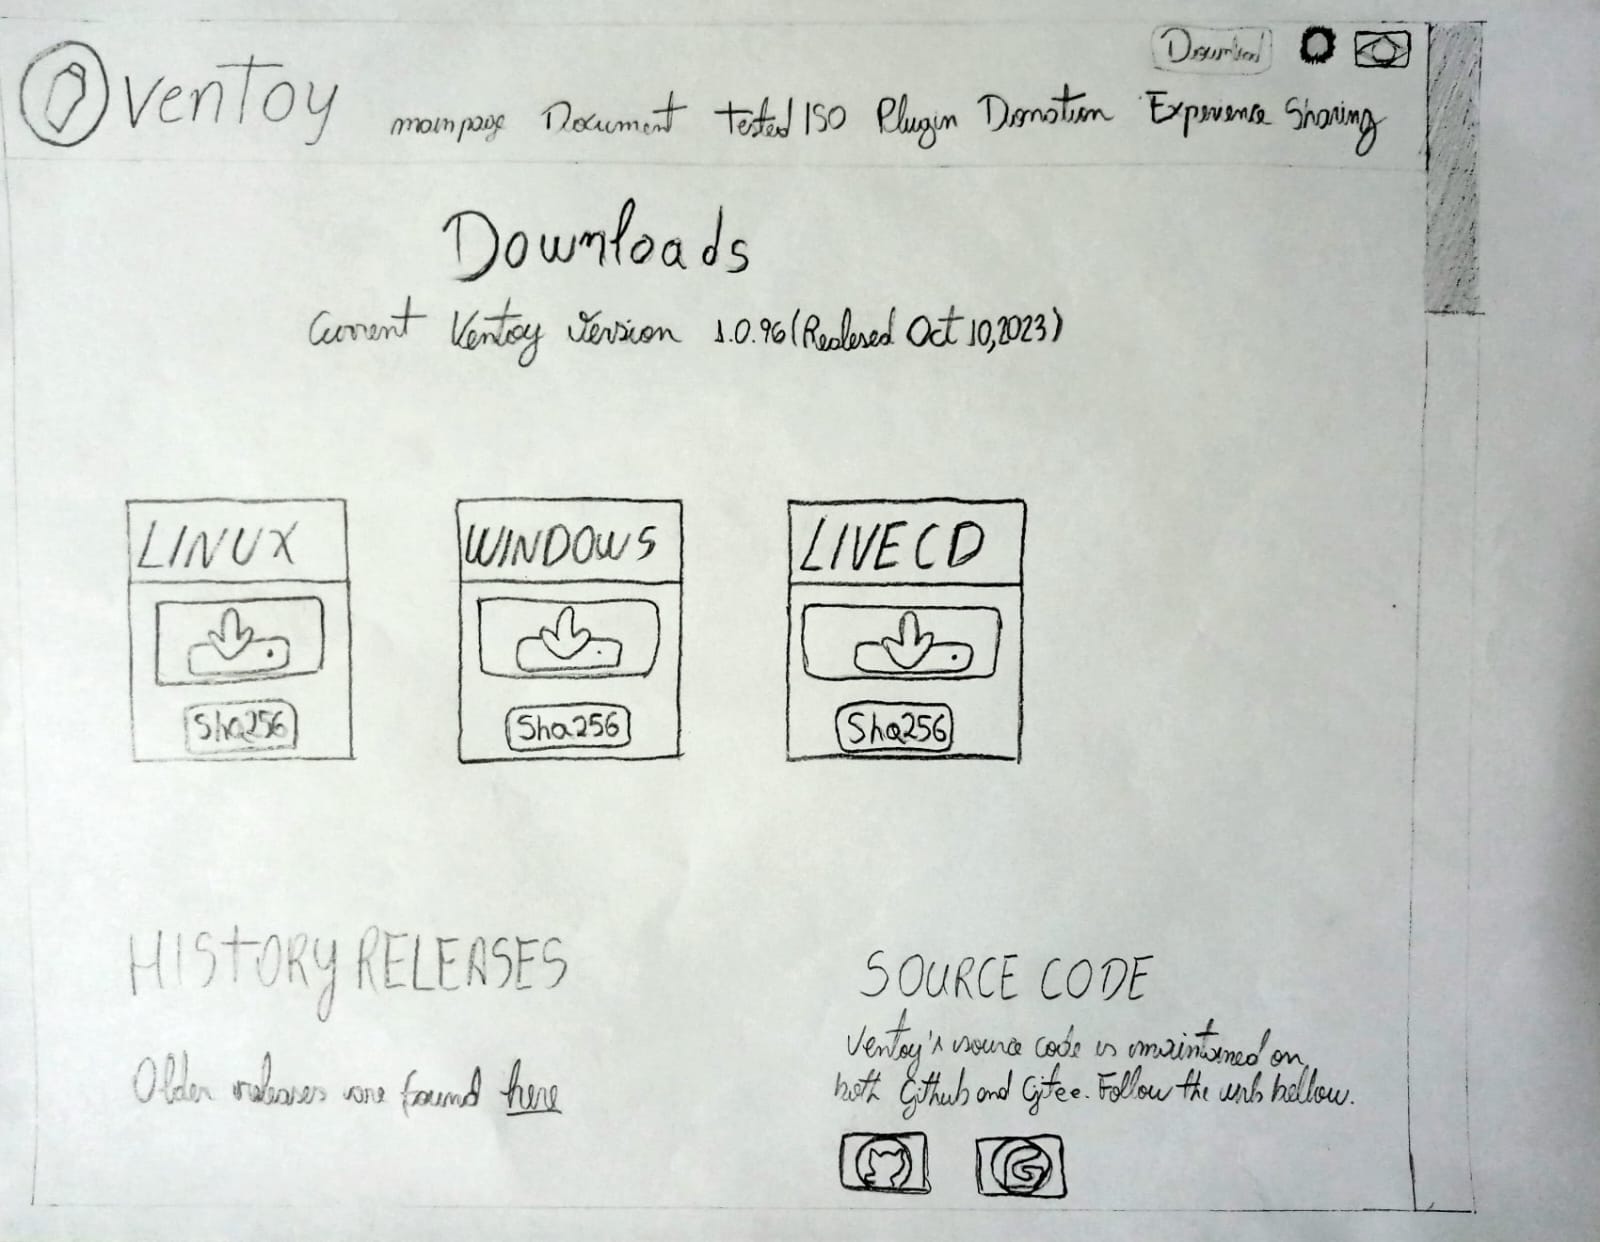 Download
Ventoy
main page Document Tested ISO Plugin Donation Experience Sharing
Downloads
Current Ventoy Version 1.0.96 (Realesed Oct 10, 2023)
LINUX
Sha256
WINDOWS
Sha256
LIVE CD
Sha256
HISTORY RELEASES
Older releases are found here
SOURCE CODE
Ventoy's source code is maintained on
both Github and Gitee. Follow the urls bellow.